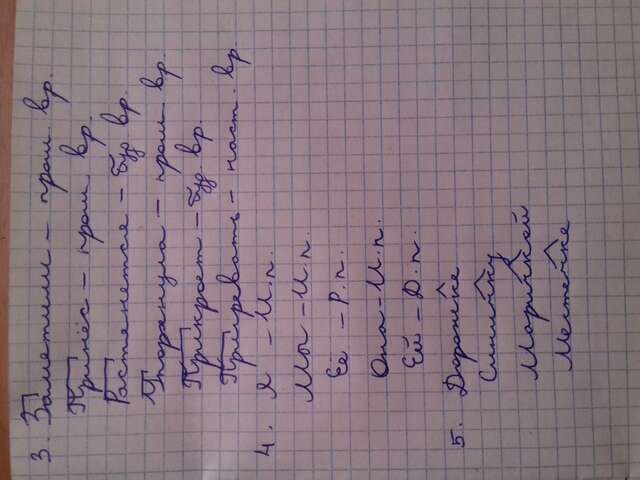 3. Заметили – прош. вр.
Принёс – прош вр.
Растянется – буд вр.
Упорхнула – прош. вр.
Прикроет – буд. вр.
Пригревать – наст. вр.
4. Я – И.п.
Мы – И.п.
Её – Р.п.
Она – И.п.
Ей – Д.п.
5. Дорожке
Синичку
Маричкой
Местечке